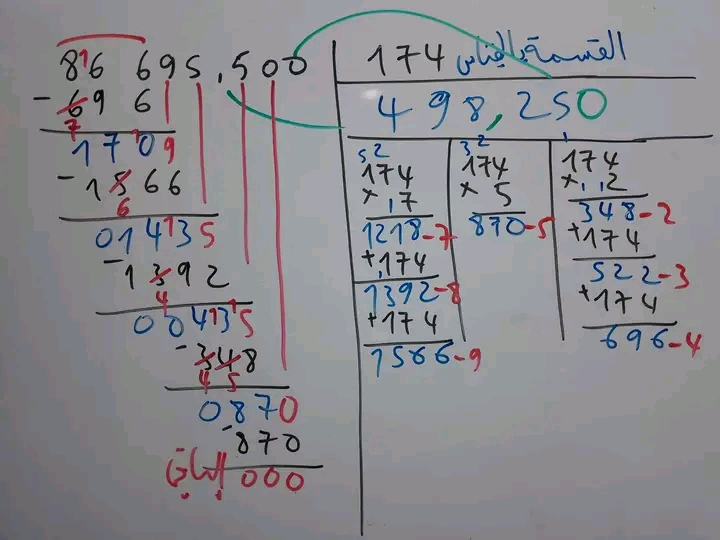 القسمة بالقياس
86 695,500 174
- 696 498,250
1709
- 1566
01435
- 1392
00435
- 348
0870
- 870
الباقي 000
174
× 7
1218 - 7
+ 174
1392 - 8
+ 174
1566 - 9
174
× 5
870 - 5
174
× 2
348 - 2
+ 174
522 - 3
+ 174
696 - 4